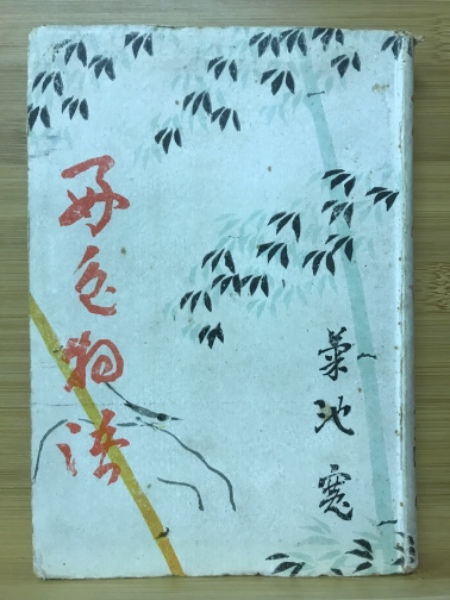 好色物語
菊池寛